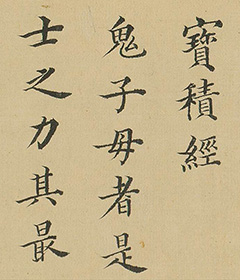 寶積經
鬼子母者是
士之力其最